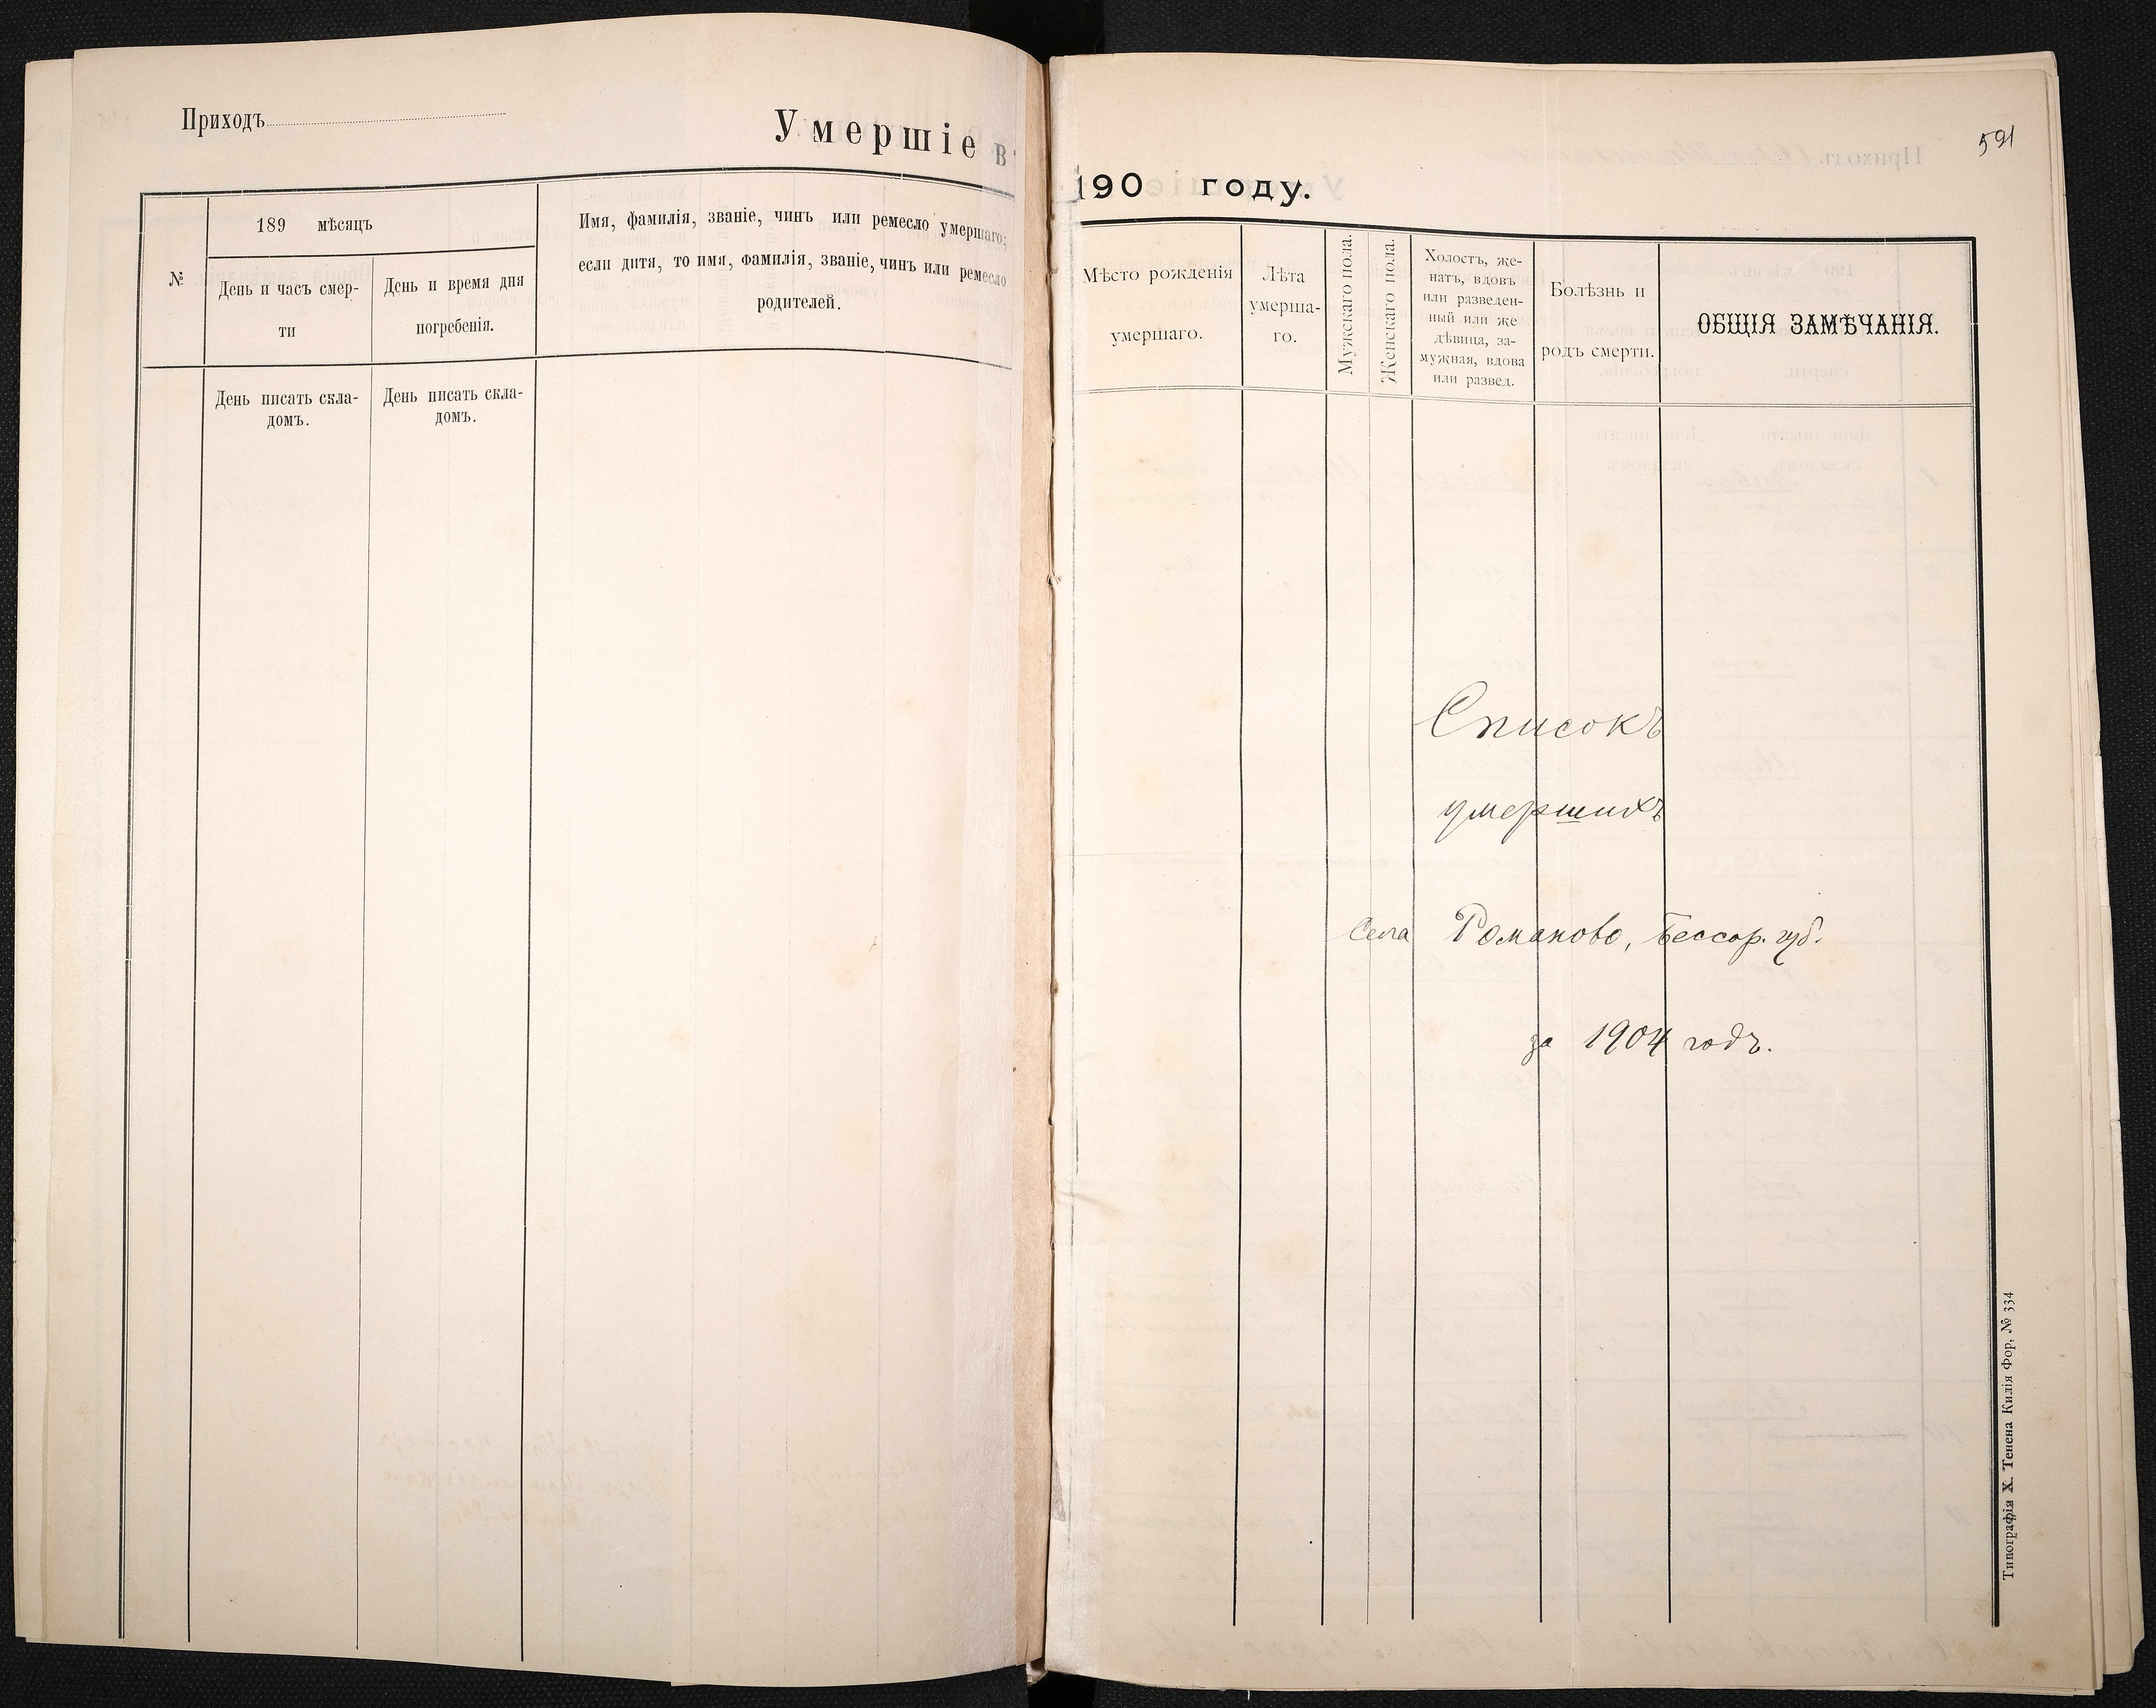 Приходъ
Умершіе в
№
189 мѣсяцъ
День и часъ смер-
ти
День и время дня
погребенія.
Имя, фамилія, званіе, чинъ или ремесло умершаго;
если дитя, то имя, фамилія, званіе, чинъ или ремесло
родителей.
День писать скла-
домъ.
День писать скла-
домъ.
591
190 году.
Мѣсто рожденія
умершаго.
Лѣта
умерша-
го.
Мужскаго пола.
Женскаго пола.
Холостъ, же-
натъ, вдовъ
или разведен-
ный или же
дѣвица, за-
мужная, вдова
или развед.
Болѣзнь и
родъ смерти.
ОБЩІЯ ЗАМѢЧАНІЯ.
Списокъ
умершихъ
Села Романово, Бессар. губ.
за 1904 годъ.
Типографія Х. Тенена Килія Фор, № 334